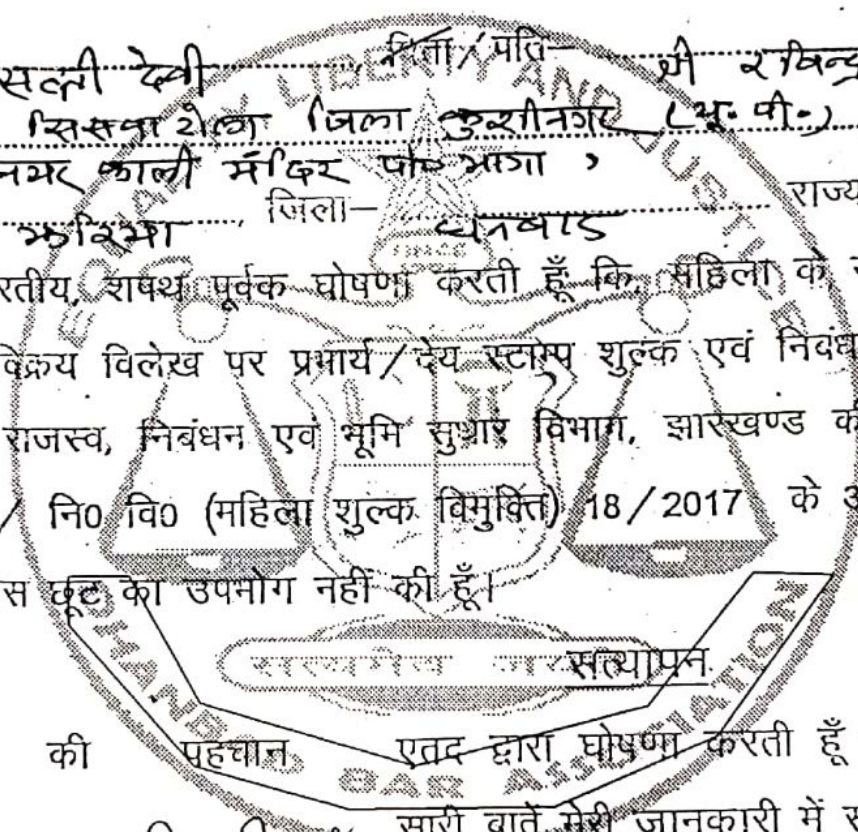 सत्ली देवी पिता / पति– श्री रविन्द्र
सिसवा टोला जिला कुशीनगर (यू. पी.)
नगर काली मंदिर पो० भागा,
झरिया जिला– धनबाद राज्य
रतीय, शपथ पूर्वक घोषणा करती हूँ कि, महिला के
विक्रय विलेख पर प्रभार्य / देय स्टाम्प शुल्क एवं निबंध
राजस्व, निबंधन एवं भूमि सुधार विभाग, झारखण्ड
/ नि0 वि0 (महिला शुल्क विमुक्ति) 18 / 2017 के
स छूट का उपभोग नहीं की हूँ।
सत्यापन
की पहचान एतद द्वारा घोषणा करती हूँ
सारी बातें मेरी जानकारी में
EQUALITY LIBERTY AND JUSTICE
DHANBAD BAR ASSOCIATION